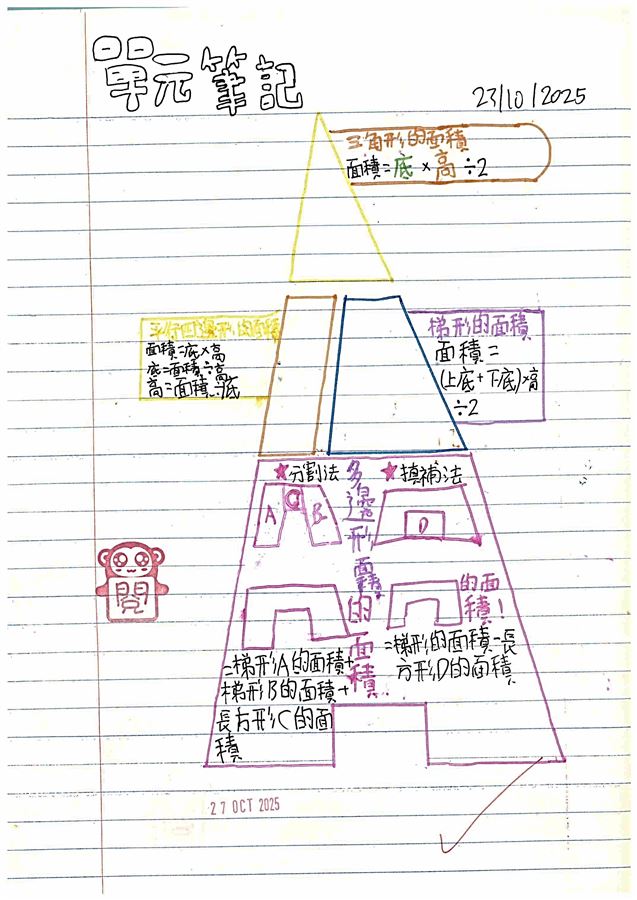 單元筆記
23/10/2025
三角形的面積
面積=底×高÷2
平行四邊形的面積
面積=底×高
底=面積÷高
高=面積÷底
梯形的面積
面積=
(上底+下底)×高
÷2
★分割法
★填補法
多邊形面積的面積
A
C
B
D
的面
積!
=梯形A的面積+
梯形B的面積+
長方形C的面
積
=梯形的面積-長
方形D的面積
閱
27 OCT 2025